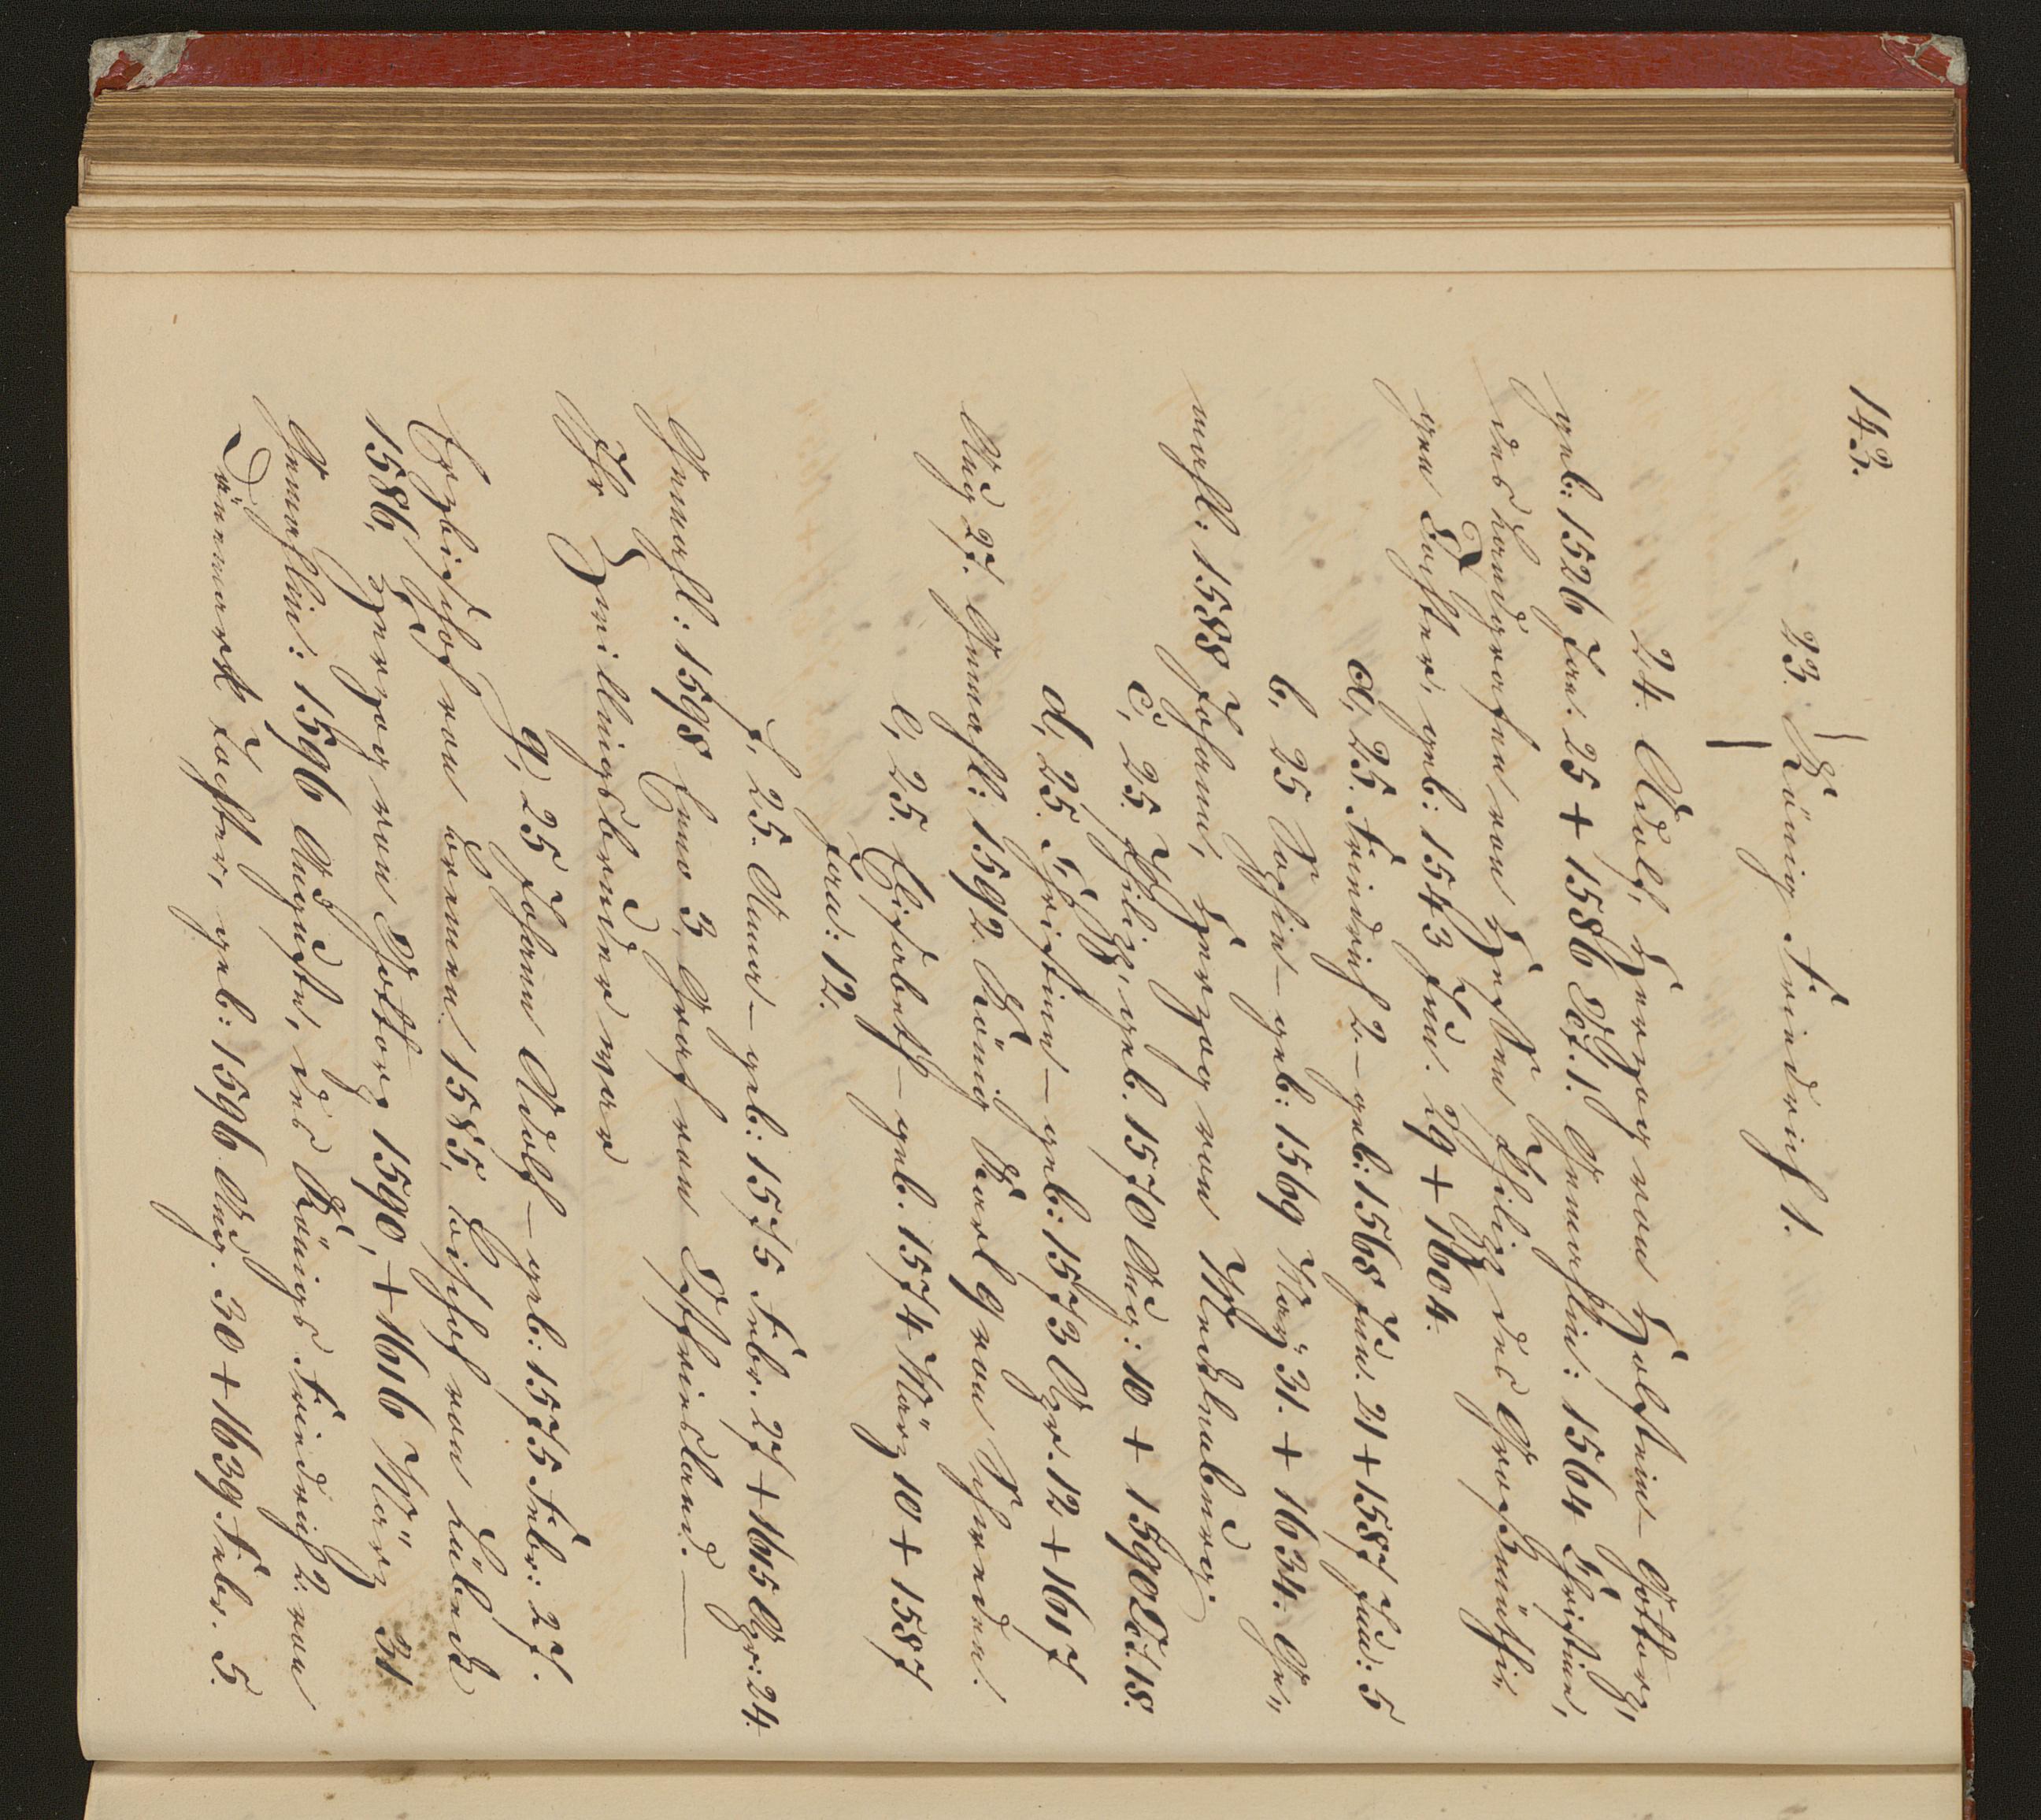 143.
23. König Friedrich 1.
24. Adolf, Herzog von Holstein-Gottorp,
geb: 1526 Jan: 25 + 1586 Oct. 1. Gemahlin: 1564 Christine,
des Landgrafen von Hessen Philip des Großmüthi-
gen Tochter, geb: 1543 Jun. 29 + 1604.
a, 25. Friedrich 2. - geb: 1568 Jun. 21 + 1587 Jun: 5
b, 25 Sophie - geb: 1569 May 31. + 1634. Ge-
mahl: 1588 Johann, Herzog von Mecklenburg.
c, 25. Philip, geb. 1570 Aug: 10 + 1590 Oct. 18.
d, 25. Christine - geb: 1573 Apr. 12 + 1617
Aug 27. Gemahl: 1592. König Karl 9 von Schweden.
e, 25. Elisabeth - geb. 1574 März 10 + 1587
Jan: 12.
f, 25. Anna - geb: 1575 Febr. 27 + 1615 Apr: 24.
Gemahl: 1598 Enno 3, Graf von Ostfriesland. —
Ihr Zwillingsbruder war
g, 25 Johann Adolf - geb: 1575 Febr: 27.
Erzbischof von Bremen 1585, Bischof von Lübeck
1586, Herzog von Gottorp 1590, + 1616 März 31
Gemahlin: 1596 Auguste, des Königs Friedrich 2. von
Dänemark Tochter, geb: 1596 Aug. 30 + 1639. Febr. 5.